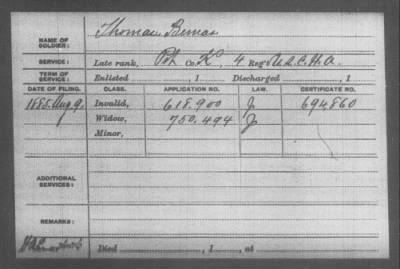 NAME OF SOLDIER: Thomas
SERVICE: Late rank, Pvt Co. K, 4 Reg't U.S.C.H.A.
TERM OF SERVICE: Enlisted , 1 Discharged , 1
DATE OF FILING. CLASS. APPLICATION NO. LAW. CERTIFICATE NO.
Invalid, 618.900 J 694.860
Widow, 750.494 J
Minor,
ADDITIONAL SERVICES:
REMARKS:
Died , 1 , at